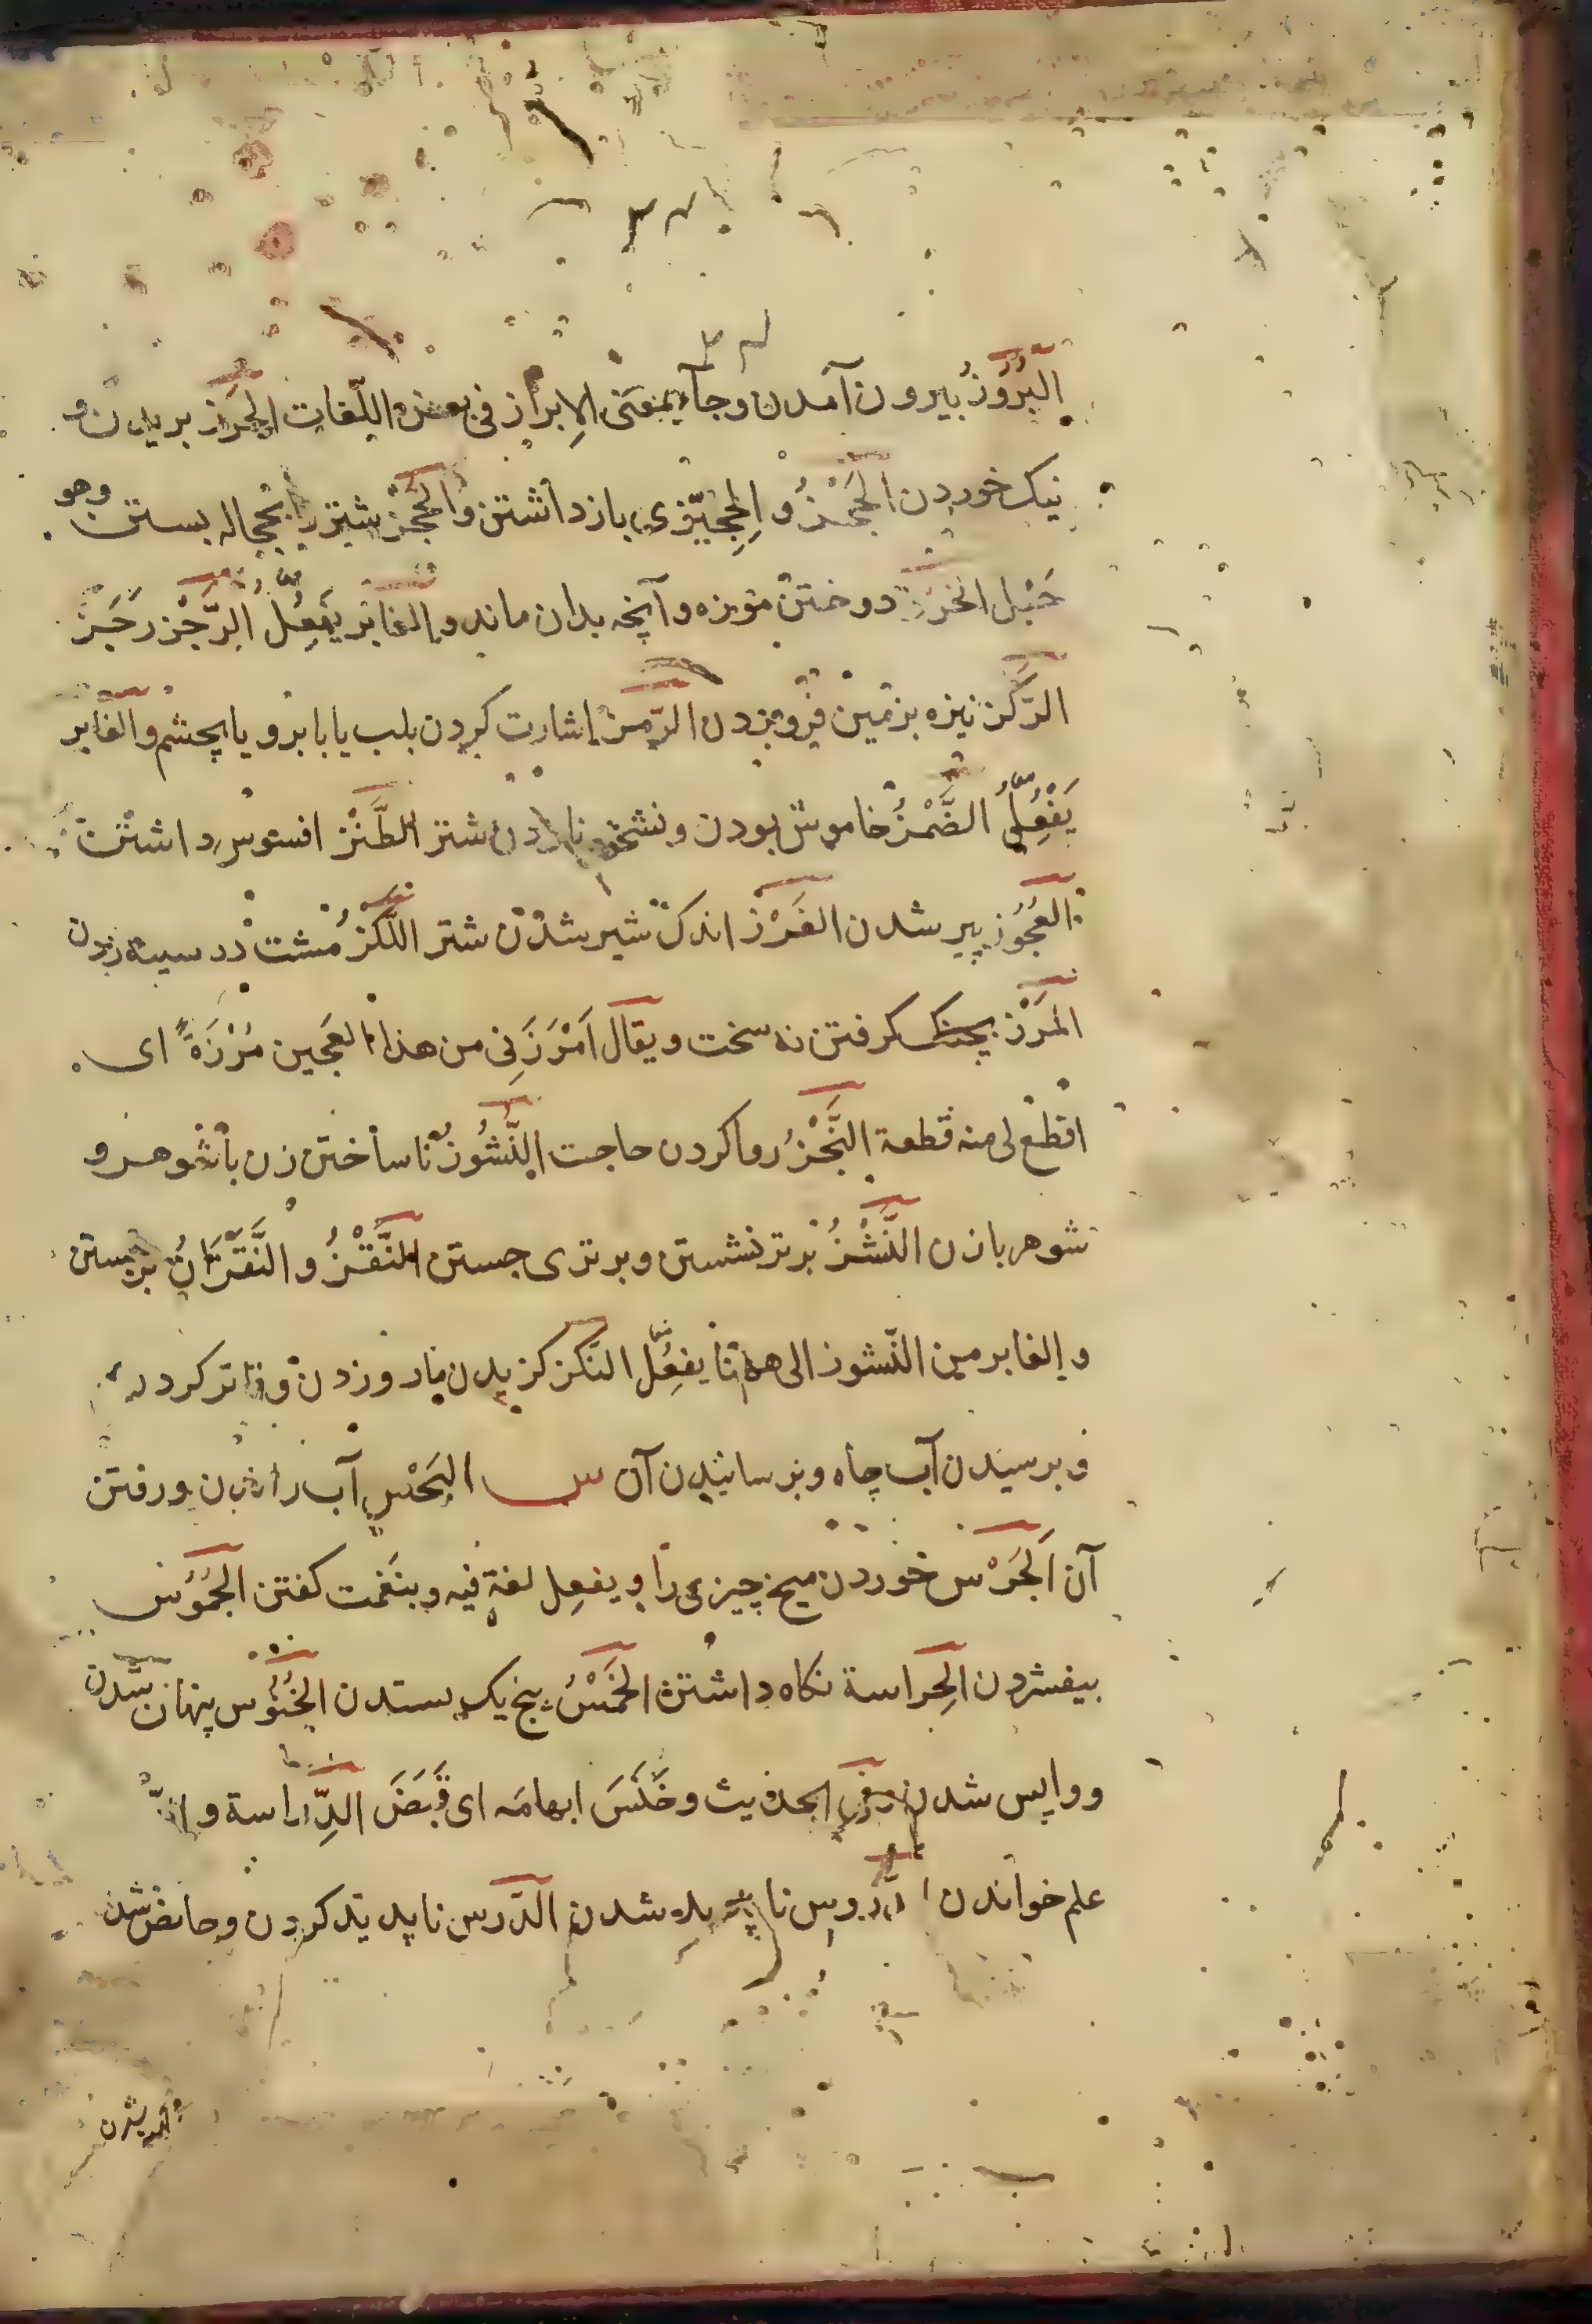 اَلبُرُوزُ بیرون آمدن وجآء بمعنی الاِبراز فی بعض اللّغات الجَرْز بریدن و
نیک خوردن الحَجْزُ و الحِجِّیزی باز داشتن و الحَجْز شتر را بحجاله بستن وهو
حَبْل الخَرْز دوختن موزه و آنچه بدان ماند و الغابر یَفعِلُ الرّجْز رَجَز
الرَّکْز نیزه بزمین فرو بردن الرّمز اشارت کردن بلب یا بابرو یا بچشم و الغابر
یَفْعِلُ الضَّمْزُ خاموش بودن و نشخور نازدن شتر الطَّنْز افسوس داشتن
العُجُوز پیر شدن الغَرْز اندک شیر شدن شتر اللَّکْز مُشت در سینه زدن
المَرْز بچنک کرفتن نه سخت و یقال اَمْرَزَنِی من هذا العَجین مُرْزَةً ای
اقطع لی منه قطعة النَّجْزُ روا کردن حاجت النُّشُوزُ ناساختن زن با شوهر و
شوهر با زن النَّشْزُ برتر نشستن و برتری جستن النَّقْزُ و النَّقَزَانُ برجستن
و الغابر من النّشوز الی هاهنا یفعِلُ النکز کزیدن مار و زدن و فاتر کردن
و برسیدن آب چاه و برسانیدن آن س البَجْس آب راندن و رفتن
آن اَلجَرْس خوردن میخ چیزی را و یفعِل لغة فیه و بنغمت کفتن الجُمُوس
بیفشردن الحِراسة نکاه داشتن الخَمْسُ پنج یک ستدن الخُنُوس پنهان شدن
و واپس شدن و فی الحدیث وخَنَسَ ابهامَه ای قَبَضَ الدِّراسة و
علم خواندن الدّروس ناپدید شدن الدَّرس ناپدید کردن و حائض شدن